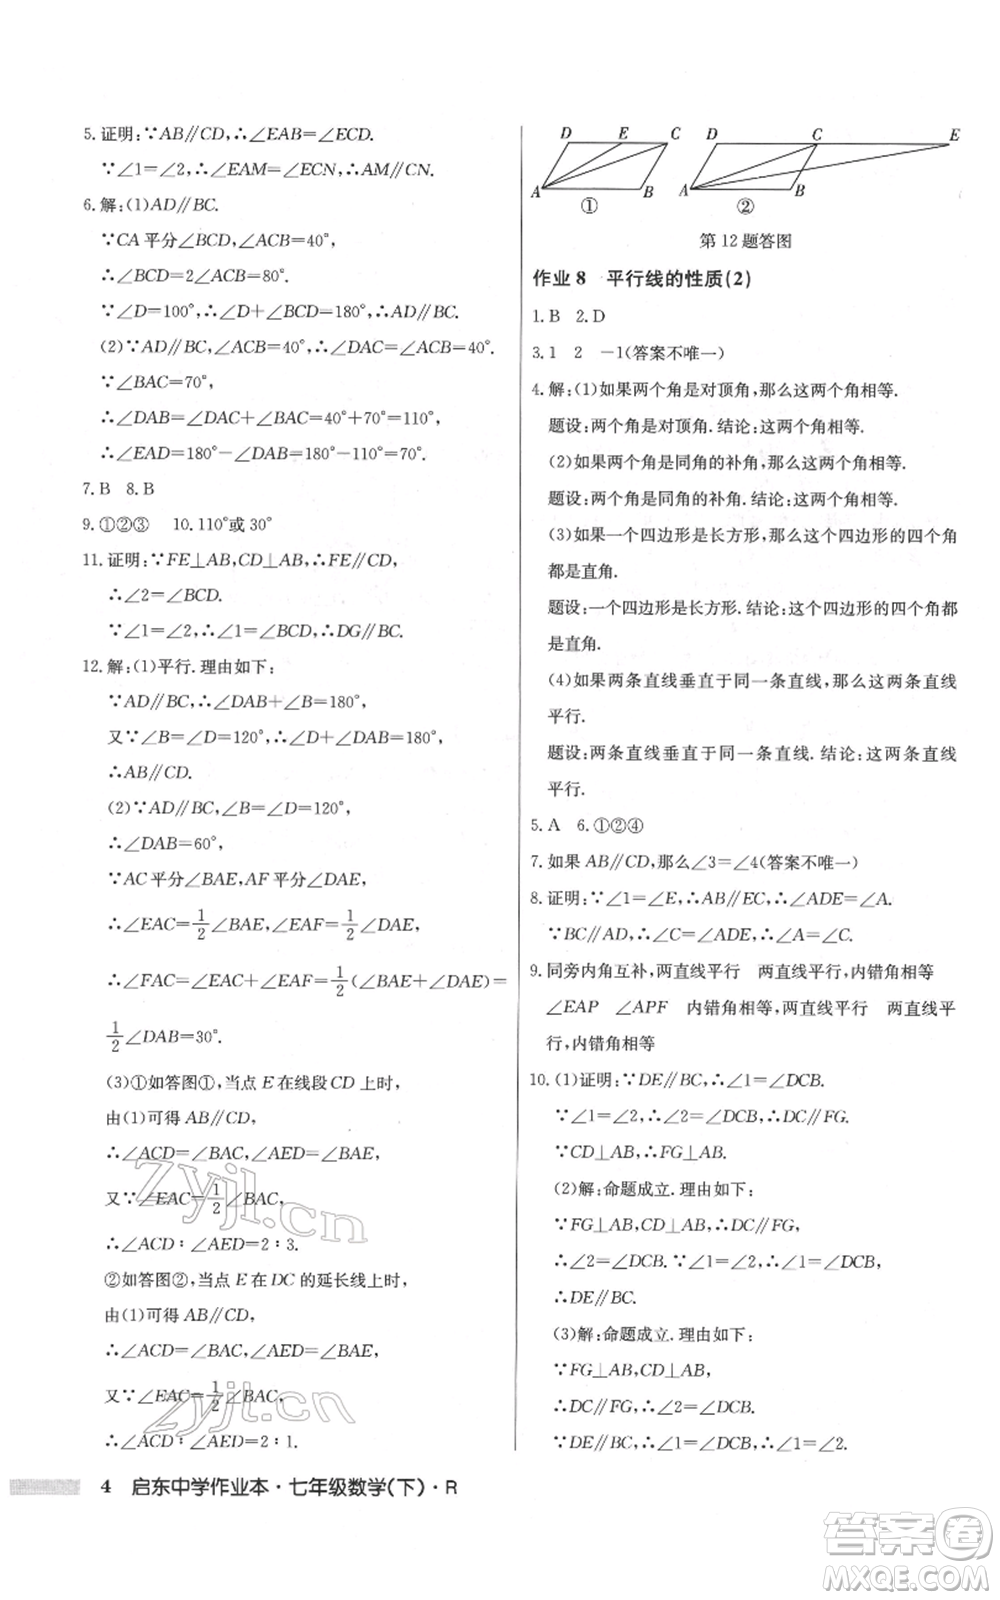 5. 证明:∵AB∥CD,∴∠EAB=∠ECD.
∵∠1=∠2,∴∠EAM=∠ECN,∴AM∥CN.
6. 解:(1)AD∥BC.
∵CA 平分∠BCD,∠ACB=40°,
∴∠BCD=2∠ACB=80°.
∵∠D=100°,∴∠D+∠BCD=180°,∴AD∥BC.
(2)∵AD∥BC,∠ACB=40°,∴∠DAC=∠ACB=40°.
∵∠BAC=70°,
∴∠DAB=∠DAC+∠BAC=40°+70°=110°,
∴∠EAD=180°-∠DAB=180°-110°=70°.
7. B 8. B
9. ①②③ 10. 110°或 30°
11. 证明:∵FE⊥AB,CD⊥AB,∴FE∥CD,
∴∠2=∠BCD.
∵∠1=∠2,∴∠1=∠BCD,∴DG∥BC.
12. 解:(1)平行.理由如下:
∵AD∥BC,∴∠DAB+∠B=180°.
又∵∠B=∠D=120°,∴∠D+∠DAB=180°,
∴AB∥CD.
(2)∵AD∥BC,∠B=∠D=120°,
∴∠DAB=60°.
∵AC 平分∠BAE,AF 平分∠DAE,
∴∠EAC=1/2∠BAE,∠EAF=1/2∠DAE,
∴∠FAC=∠EAC+∠EAF=1/2(∠BAE+∠DAE)=
1/2∠DAB=30°.
(3)①如答图①,当点 E 在线段 CD 上时,
由(1)可得 AB∥CD,
∴∠ACD=∠BAC,∠AED=∠BAE,
又∵∠EAC=1/2∠BAC,
∴∠ACD∶∠AED=2∶3.
②如答图②,当点 E 在 DC 的延长线上时,
由(1)可得 AB∥CD,
∴∠ACD=∠BAC,∠AED=∠BAE,
又∵∠EAC=1/2∠BAC,
∴∠ACD∶∠AED=2∶1.
4 启东中学作业本·七年级数学(下)·R
D E C D C E
A B A B
① ②
第 12 题答图
作业 8 平行线的性质(2)
1. B 2. D
3. 1 2 -1(答案不唯一)
4. 解:(1)如果两个角是对顶角,那么这两个角相等.
题设:两个角是对顶角.结论:这两个角相等.
(2)如果两个角是同角的补角,那么这两个角相等.
题设:两个角是同角的补角.结论:这两个角相等.
(3)如果一个四边形是长方形,那么这个四边形的四个角
都是直角.
题设:一个四边形是长方形.结论:这个四边形的四个角都
是直角.
(4)如果两条直线垂直于同一条直线,那么这两条直线
平行.
题设:两条直线垂直于同一条直线.结论:这两条直线
平行.
5. A 6. ①②④
7. 如果 AB∥CD,那么∠3=∠4(答案不唯一)
8. 证明:∵∠1=∠E,∴AB∥EC,∴∠ADE=∠A.
∵BC∥AD,∴∠C=∠ADE,∴∠A=∠C.
9. 同旁内角互补,两直线平行 两直线平行,内错角相等
∠EAP ∠APF 内错角相等,两直线平行 两直线平
行,内错角相等
10. (1)证明:∵DE∥BC,∴∠1=∠DCB.
∵∠1=∠2,∴∠2=∠DCB,∴DC∥FG.
∵CD⊥AB,∴FG⊥AB.
(2)解:命题成立.理由如下:
∵FG⊥AB,CD⊥AB,∴DC∥FG,
∴∠2=∠DCB.∵∠1=∠2,∴∠1=∠DCB,
∴DE∥BC.
(3)解:命题成立.理由如下:
∵FG⊥AB,CD⊥AB,
∴DC∥FG,∴∠2=∠DCB.
∵DE∥BC,∴∠1=∠DCB,∴∠1=∠2.
Zyjl.cn
Zyjl.cn
答案卷
MXQE.COM